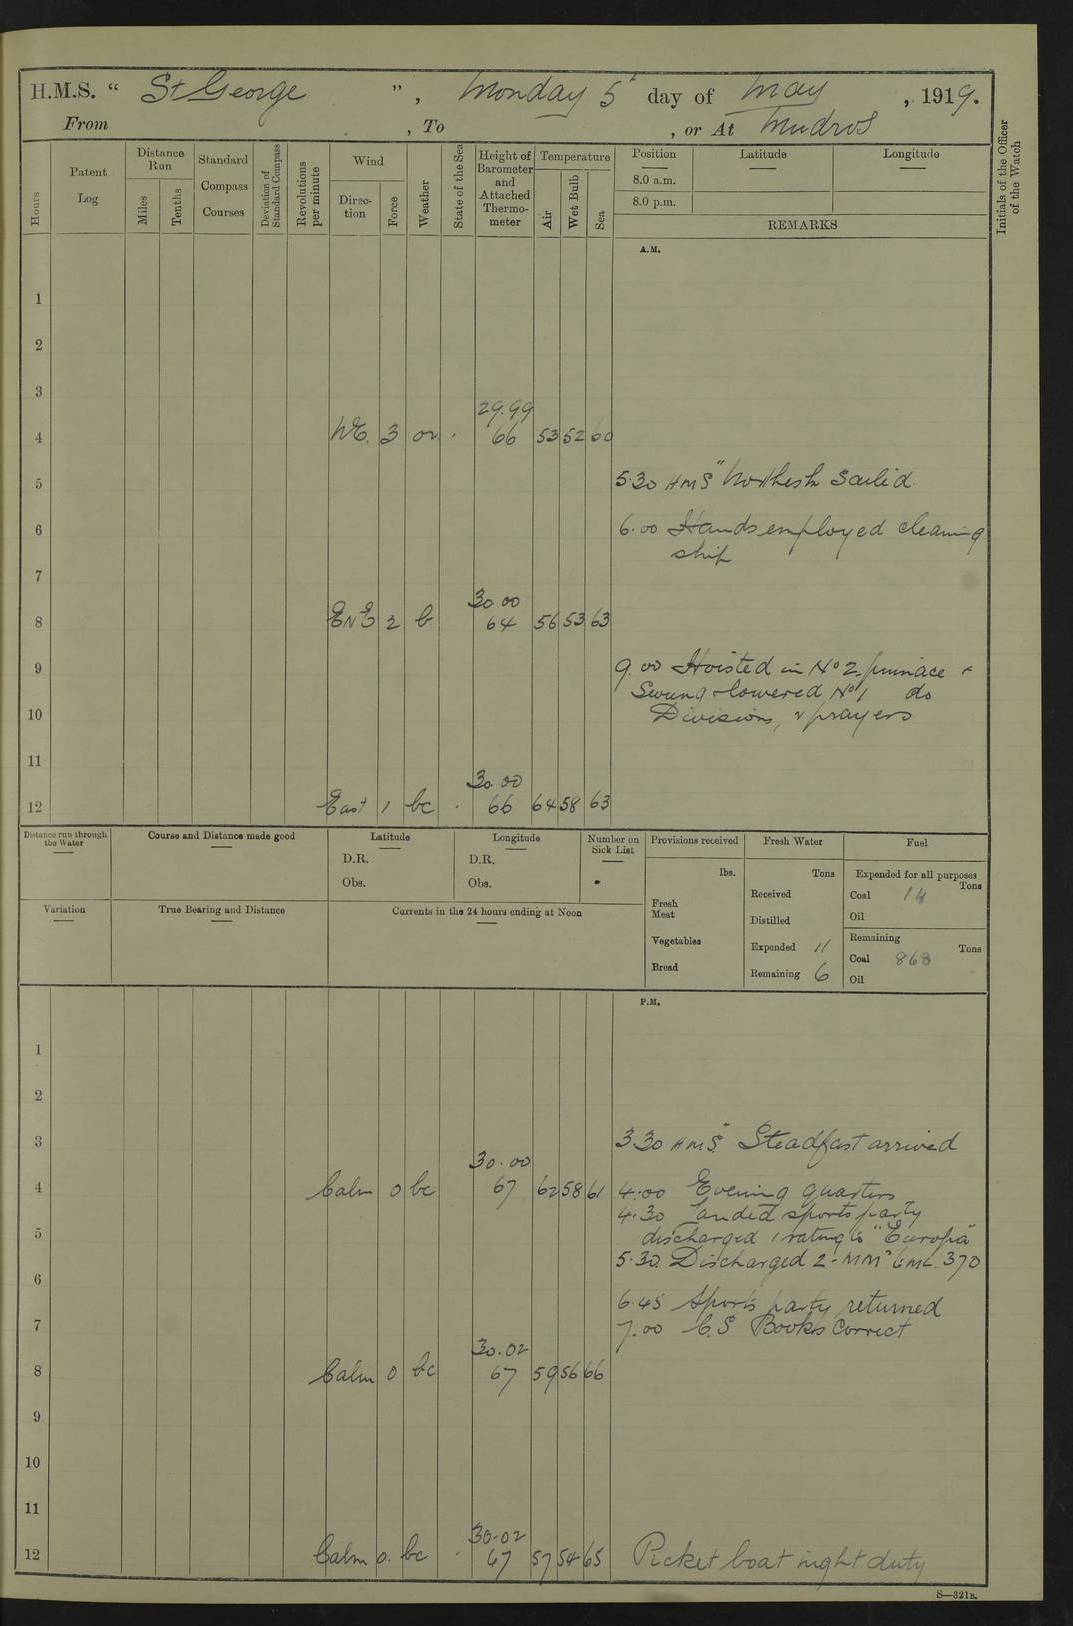 H.M.S. “ St George ” , Monday 5th day of May , 1919.
From , To , or At Mudros
Hours
Patent Log
Distance Run
Miles
Tenths
Standard Compass Courses
Deviation of Standard Compass
Revolutions per minute
Wind
Direction
Force
Weather
State of the Sea
Height of Barometer and Attached Thermometer
Temperature
Air
Wet Bulb
Sea
Position
8.0 a.m.
8.0 p.m.
Latitude
Longitude
REMARKS
Initials of the Officer of the Watch
A.M.
1
2
3
29.99
4 NE. 3 66 53 52 60
5 5.30 HMS " sailed
6 6.00 Hands employed cleaning
ship
7
30.00
8 ENE 2 b 64 56 53 63
9 9.00 Hoisted in No 2 pinnace &
Swung & lowered No 1 do
10 Divisions, & prayers
11
30.00
12 East 1 bc 66 64 58 63
Distance run through the Water
Course and Distance made good
Latitude
D.R.
Obs.
Longitude
D.R.
Obs.
Number on Sick List
Provisions received
lbs.
Fresh Meat
Vegetables
Bread
Fresh Water
Tons
Received
Distilled
Expended 11
Remaining 6
Fuel
Expended for all purposes
Tons
Coal 14
Oil
Remaining
Tons
Coal 868
Oil
Variation
True Bearing and Distance
Currents in the 24 hours ending at Noon
P.M.
1
2
3 3.30 HMS " Steadfast arrived
30.00
4 Calm 0 bc 67 62 58 61 4.00 Evening quarters
4.30 Landed sports party
5 discharged 1 rating to "Europa"
5.30. Discharged 2 - MM ML. 370
6
6.45 Sports party returned
7 7.00 C.S Books Correct
30.02
8 Calm 0 bc 67 59 56 66
9
10
11
30.02
12 Calm 0. bc 67 57 54 65 Picket boat night duty
S—321B.